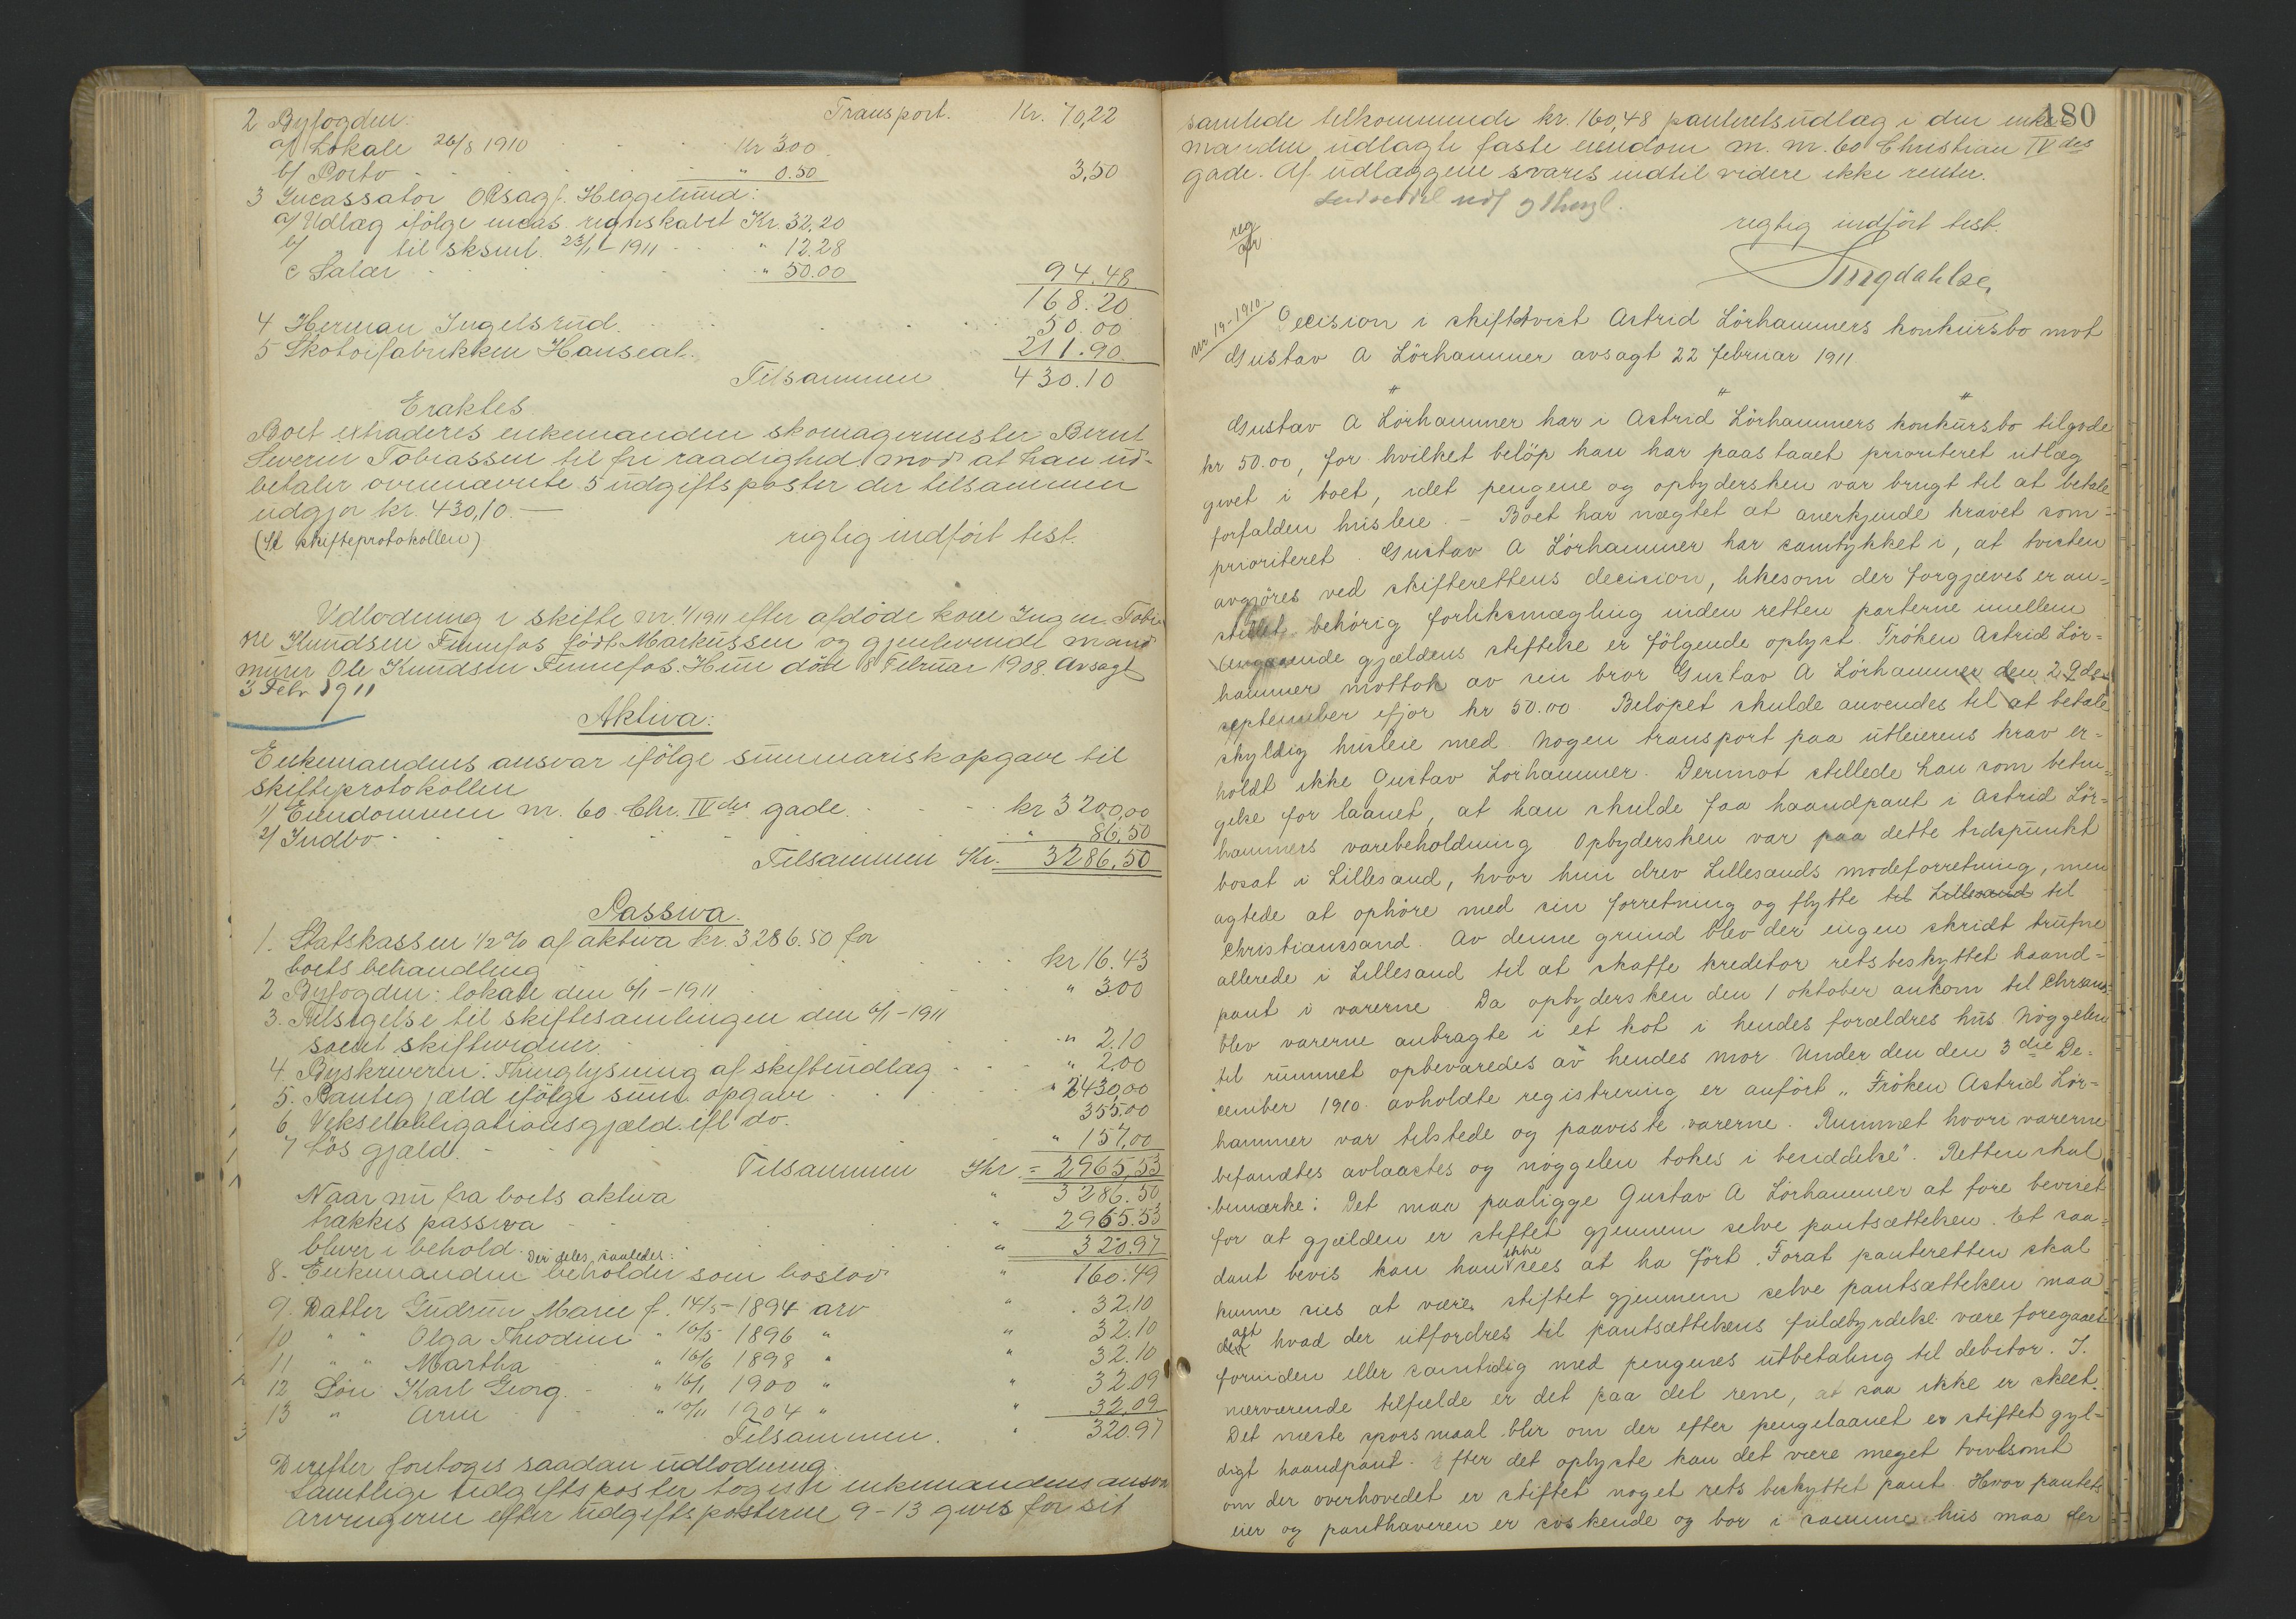 Transport. Kr. 70,22
2 Byfogden:
a/ Lokale 26/8 1910 Kr 300
b/ Porto " 0.50 3,50
3 Incassator O R sagf. Heggelund:
a/ Udlæg ifölge incas. regnskabet Kr. 32,20
b/ " til sksml. 23/1-1911 " 12.28
c Salær " 50.00 94.48
168.20
4 Herman Ingelsrud. 50.00
5 Skotöifabrikken Hanseat. 211.90
Tilsammen 430.10
Eraktes
Boet extraderes enkemanden skomagermester Bernt
Severin Tobiassen til fri raadighed mod at han ud-
betaler ovennævnte 5 udgiftsposter der tilsammen
udgjör kr. 430,10.—
(Se skifteprotokollen) rigtig indfört test.
Udlodning i skifte nr. 1/1911 efter afdöde kone Ing m. Tobi
ne Knudsen Finnefos födt Markussen og gjenlevende mand
murer Ole Knudsen Finnefos. Hun död 18 Februar 1908. Avsagt
3 Febr 1911
Aktiva:
Enkemandens ansvar ifölge summarisk opgave til
skifteprotokollen
1) Eiendommen nr. 60 Chr. IVdes gade. kr 3200,00
2) Indbo " 86,50
Tilsammen Kr. 3286,50
Passiva.
1. Statskassen 1/2 % af aktiva kr. 3286.50 for
boets behandling kr 16.43
2 Byfogden: lokale den 6/1-1911 " 300
3. Tilsigelse til skiftesamlingen den 6/1-1911
samt skiftevidner " 2.10
4. Byskriveren: Thinglysning af skifteudlæg " 2.00
5. Pantegjæld ifölge sum. opgave " 2430,00
6. Vekselobligationsgjæld ifl do. 355.00
7 Lös gjæld " 157,00
Tilsammen Kr. = 2965,53
Naar nu fra boets aktiva " 3286.50
trækkes passiva " 2965.53
bliver i behold Der deles saaledes: " 320.97
8. Enkemanden beholder som boslod " 160.49
9. Datter Gudrun Marie f. 14/5-1894 arv " 32.10
10 " " Olga Theodine " 16/5 1896 " " 32.10
11 " " Martha " 16/6 1898 " " 32.10
12 Sön Karl Georg. " 16/1 1900 " " 32.09
13 " Arne " 10/11 1904 " " 32,09
Tilsammen. " 320.97
Derefter foretoges saadan udlodning:
Samtlige udgiftsposter toges i enkemandens ansvar
Arvingerne efter udgiftsposterne 9-13 gives for sit
180
samlede tilkommende kr. 160,48 panteretsudlæg i den enke-
manden udlagte faste eiendom m. nr. 60 Christian IVdes
gade. Af udlæggene svares indtil videre ikke renter.
reg
rigtig indfört test.
nr 19-1910
Decision i skiftetvist Astrid Lörhammers konkursbo mot
Gustav A Lörhammer avsagt 22 februar 1911
" " "
Gustav A Lörhammer har i Astrid Lörhammers konkursbo tilgode
kr 50.00, for hvilket belöp han har paastaaet prioriteret utlæg
givet i boet, idet pengene og opbydersken var brugt til at betale
forfalden husleie. - Boet har nægtet at anerkjende kravet som
prioriteret. Gustav A Lörhammer har samtykket i, at tvisten
avgjöres ved skifterettens decision, likesom der forgjæves er an-
stillet behörig forliksmægling inden retten parterne imellem
Angaaende gjældens stiftelse er fölgende oplyst. Fröken Astrid Lör-
hammer mottok av sin bror Gustav A Lörhammer den 29de
september ifjor kr 50.00. Belöpet skulde anvendes til at betale
skyldig husleie med nogen transport paa utleierens krav er-
holdt ikke Gustav Lörhammer. Derimot stillede han som betin-
gelse for laanet, at han skulde faa haandpant i Astrid Lör-
hammers varebeholdning Opbydersken var paa dette tidspunkt
bosat i Lillesand, hvor hun drev Lillesands modeforretning, men
agtede at ophöre med sin forretning og flytte til Lillesand til
Christianssand. Av denne grund blev der ingen skridt trufne
allerede i Lillesand til at skaffe kreditor retsbeskyttet haand-
pant i varerne Da opbydersken den 1 oktober ankom til Chrsand
blev varerne anbragte i et kot i hendes forældres hus. Nöggelen
til rummet opbevaredes av hendes mor. Under den den 3die De-
cember 1910 avholdte registrering er anfört „Fröken Astrid Lör-
hammer var tilstede og paaviste varerne. Rummet hvori varerne
befandtes avlaastes og nöggelen tokes i besiddelse". Retten skal
bemærke: Det maa paaligge Gustav A Lörhammer at före beviset
for at gjælden er stiftet gjennem selve pantsættelsen. Et saa-
dant bevis kan han ikke sees at ha fört. Forat panteretten skal
kunne sies at være stiftet gjennem selve pantsættelsen maa
alt hvad der utfordres til pantsættelsens fuldbyrdelse være foregaaet
forinden eller samtidig med pengenes utbetaling til debitor. I
nærværende tilfælde er det paa det rene, at saa ikke er skeet.
Det næste spörsmaal blir om der efter pengelaanet er stiftet gyl-
digt haandpant. Efter det oplyste kan det være meget tvilsomt
om der overhovedet er stiftet noget rets beskyttet pant Hvor pantets
eier og panthaveren er söskende og bor i samme hus maa der